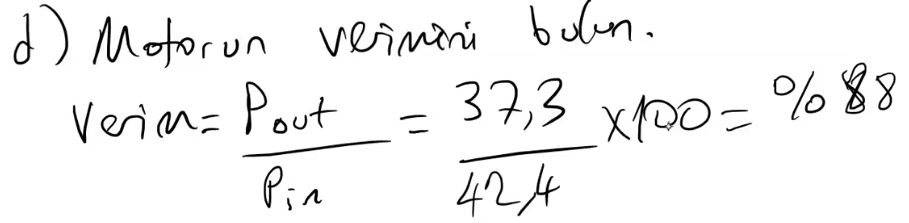 d) Motorun verimini bulun.
Verim = Pout / Pin = 37,3 / 42,4 x100 = %88